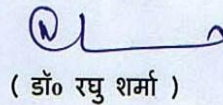 ( डॉ० रघु शर्मा )